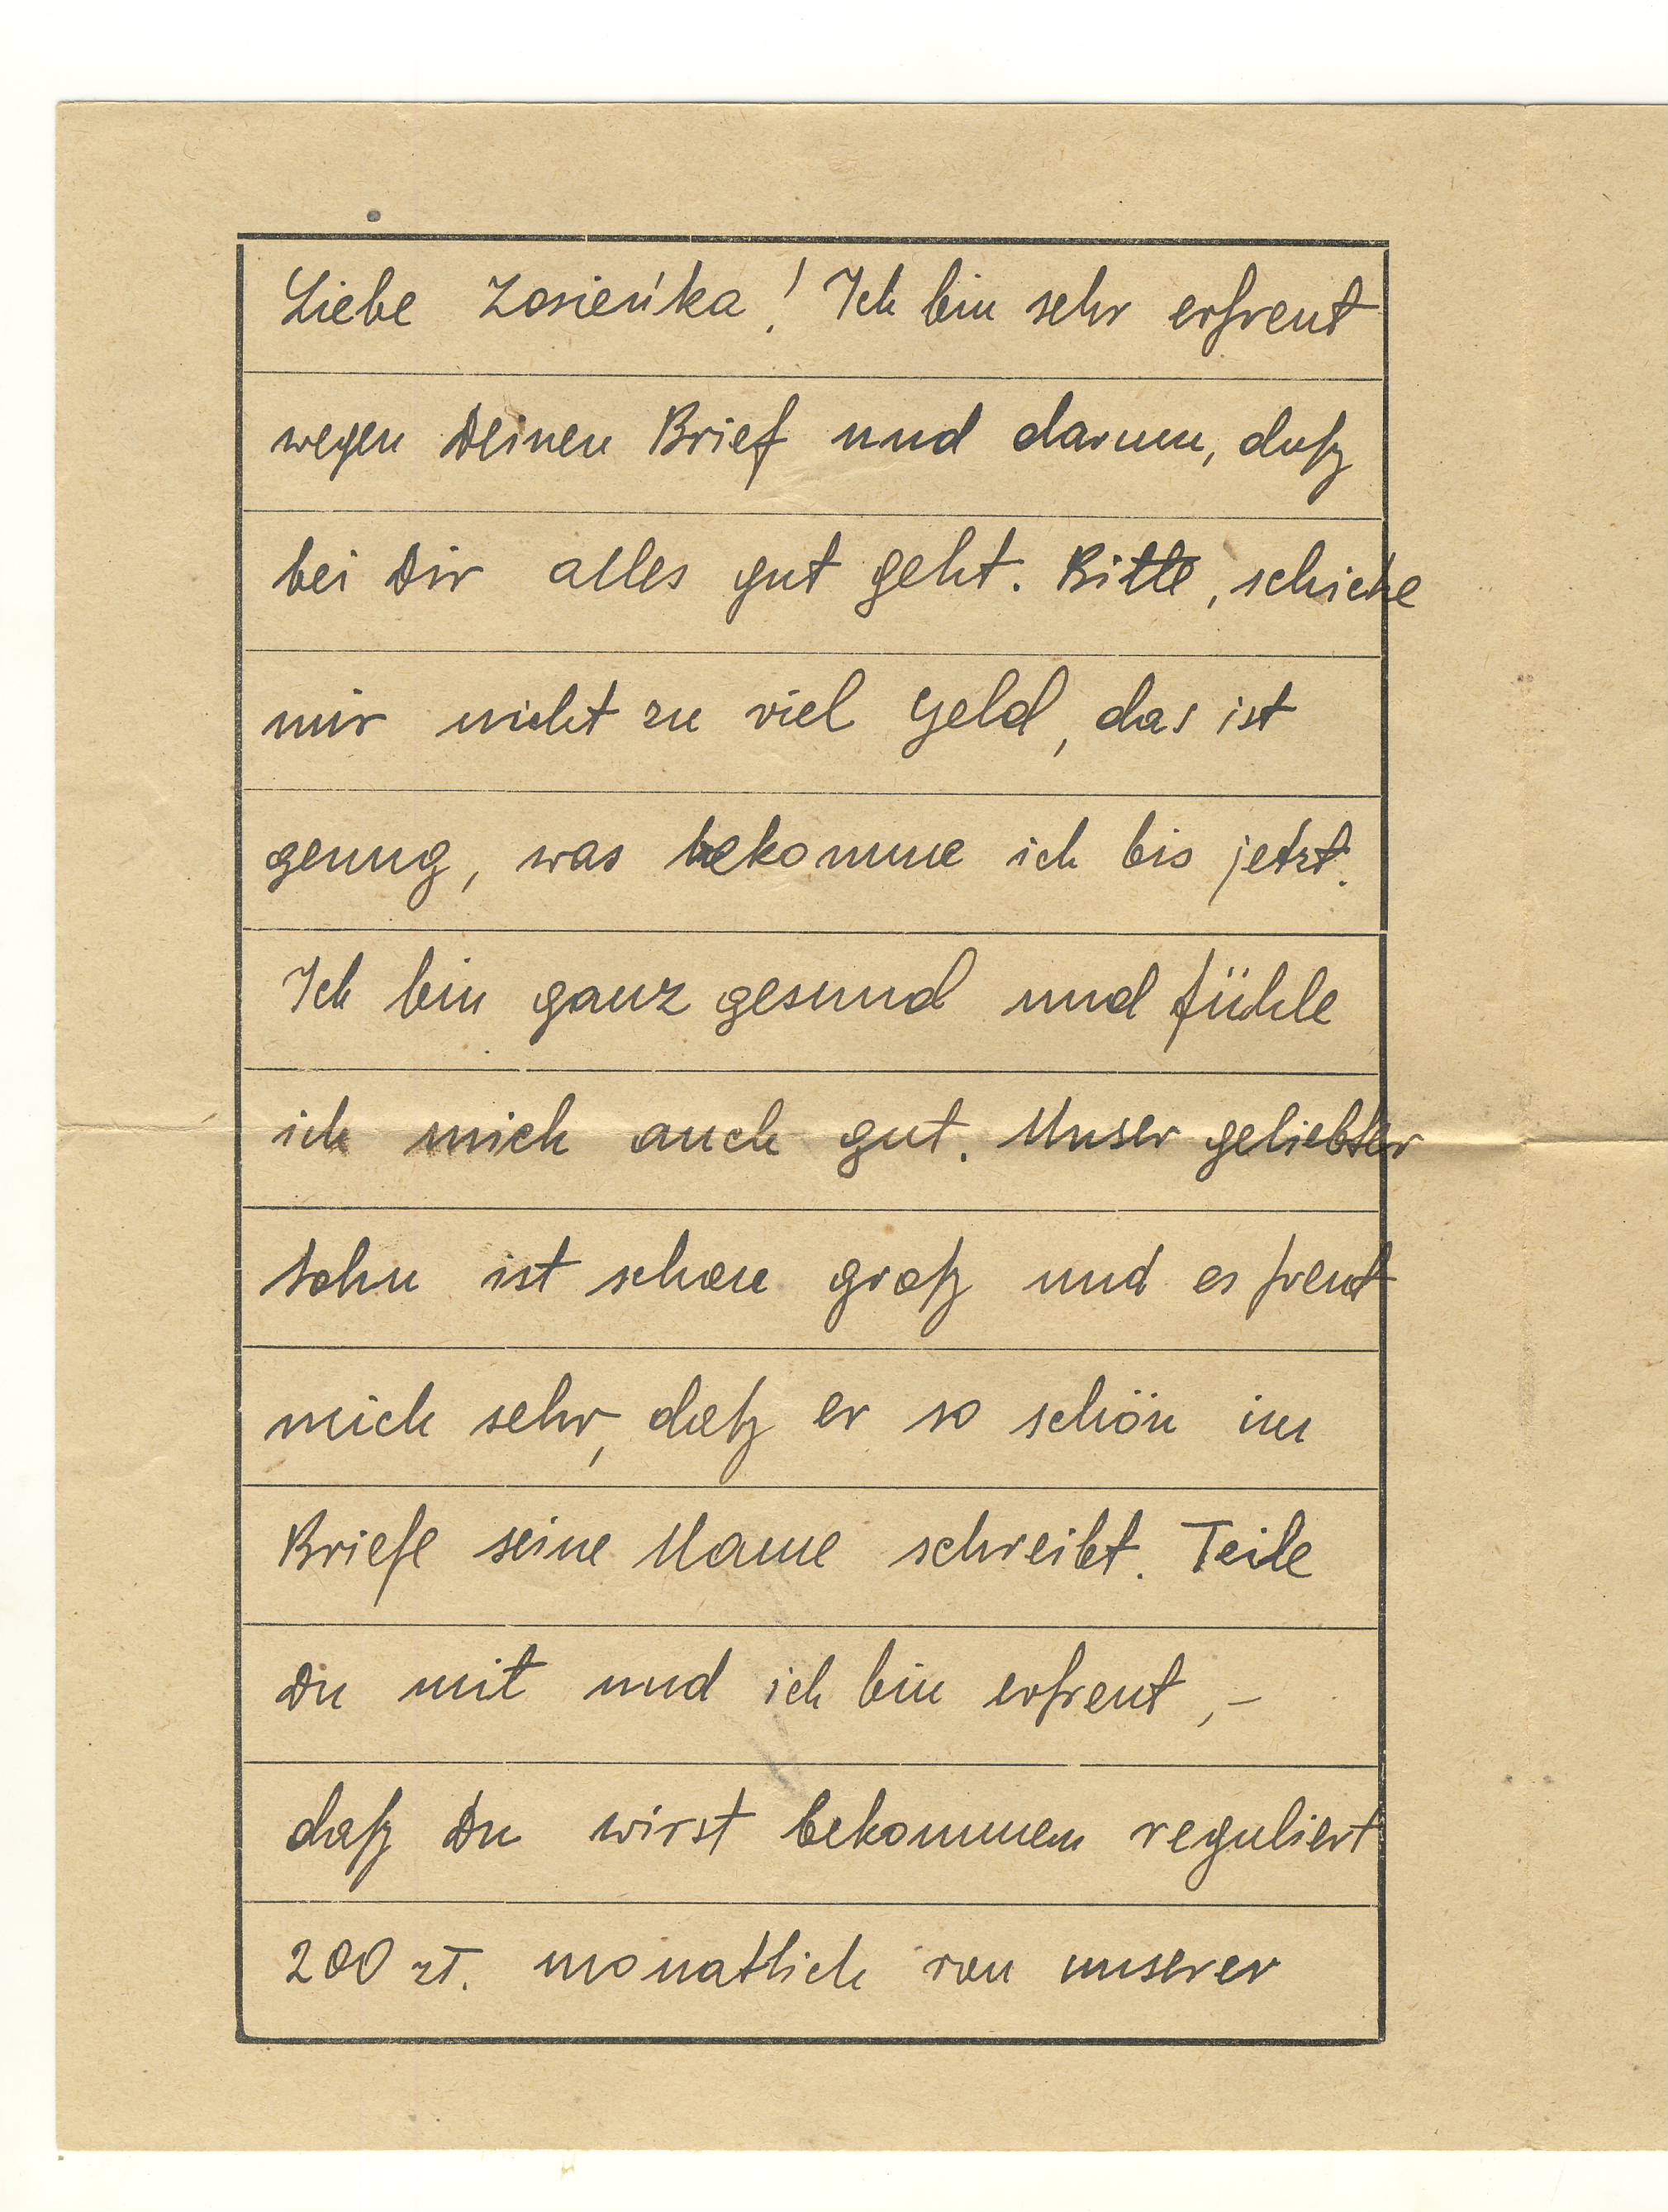 Liebe Zosieńka! Ich bin sehr erfreut
wegen Deinen Brief und darum, daß
bei Dir alles gut geht. Bitte, schicke
mir nicht zu viel Geld, das ist
genug, was bekomme ich bis jetzt.
Ich bin ganz gesund und fühle
ich mich auch gut. Unser geliebter
Sohn ist schon groß und es freut
mich sehr, daß er so schön im
Briefe seine Name schreibt. Teile
Du mit und ich bin erfreut,-
daß Du wirst bekommen reguliert
200 zł. monatlich von unserer